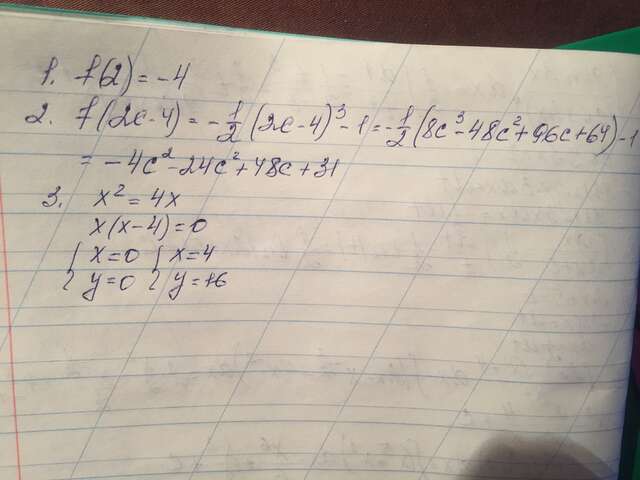 1. f(2) = -4
2. f(2c-4) = -1/2(2c-4)³-1 = -1/2(8c³-48c²+96c+64)-1
= -4c²-24c²+48c+31
3. x² = 4x
x(x-4)=0
{ x=0 { x=4
{ y=0 { y=16